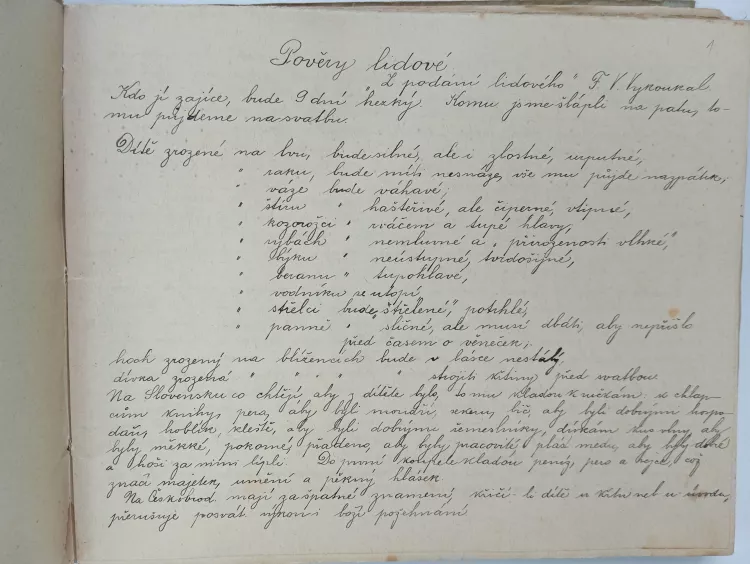 1.
Pověry lidové
„Z podání lidového" F. V. Vykoukal.
Kdo jí zajíce, bude 9 dní hezký. Komu jsme šlápli na patu, to-
mu půjdeme na svatbu.
Dítě zrozené na lvu, bude silné, ale i zlostné, urputné,
" raku, bude míti nesnáze, vše mu půjde nazpátek,
" váze bude váhavé,
" štíru " hašteřivé, ale čiperné, vtipné,
" kozorožci " a tupé hlavy,
" rybách " nemluvné a „přirozenosti vlhké,"
" býku " neústupné, tvrdošíjné,
" beranu " tupohlavé,
" vodníku se utopí,
" střelci bude „střelené," potrhlé,
" panně " sličné, ale musí dbáti, aby nepřišlo
před časem o věneček;
hoch zrozený na blížencích bude v lásce nestálý,
dívka zrozená " " " strojiti křtiny před svatbou.
Na Slovensku co chtějí, aby z dítěte bylo, to mu kladou k ručkám: chlap-
cům knihy, pera, aby byli moudří, bič, aby byli dobrými hospo-
dáři, hoblík, kleště, aby byli dobrými řemeslníky, dívkám kus vlny, aby
byly měkké, pokorné, přadeno, aby byly pracovité, plást medu, aby byly dobré
a hoši za nimi lípli. Do první koupele kladou peníz, pero a což
značí majetek, umění a pěkný hlásek.
Na Českobrod. mají za špatné znamení, křičí-li dítě u křtu neb u úvodu,
přerušuje posvát. výkon i boží požehnání.